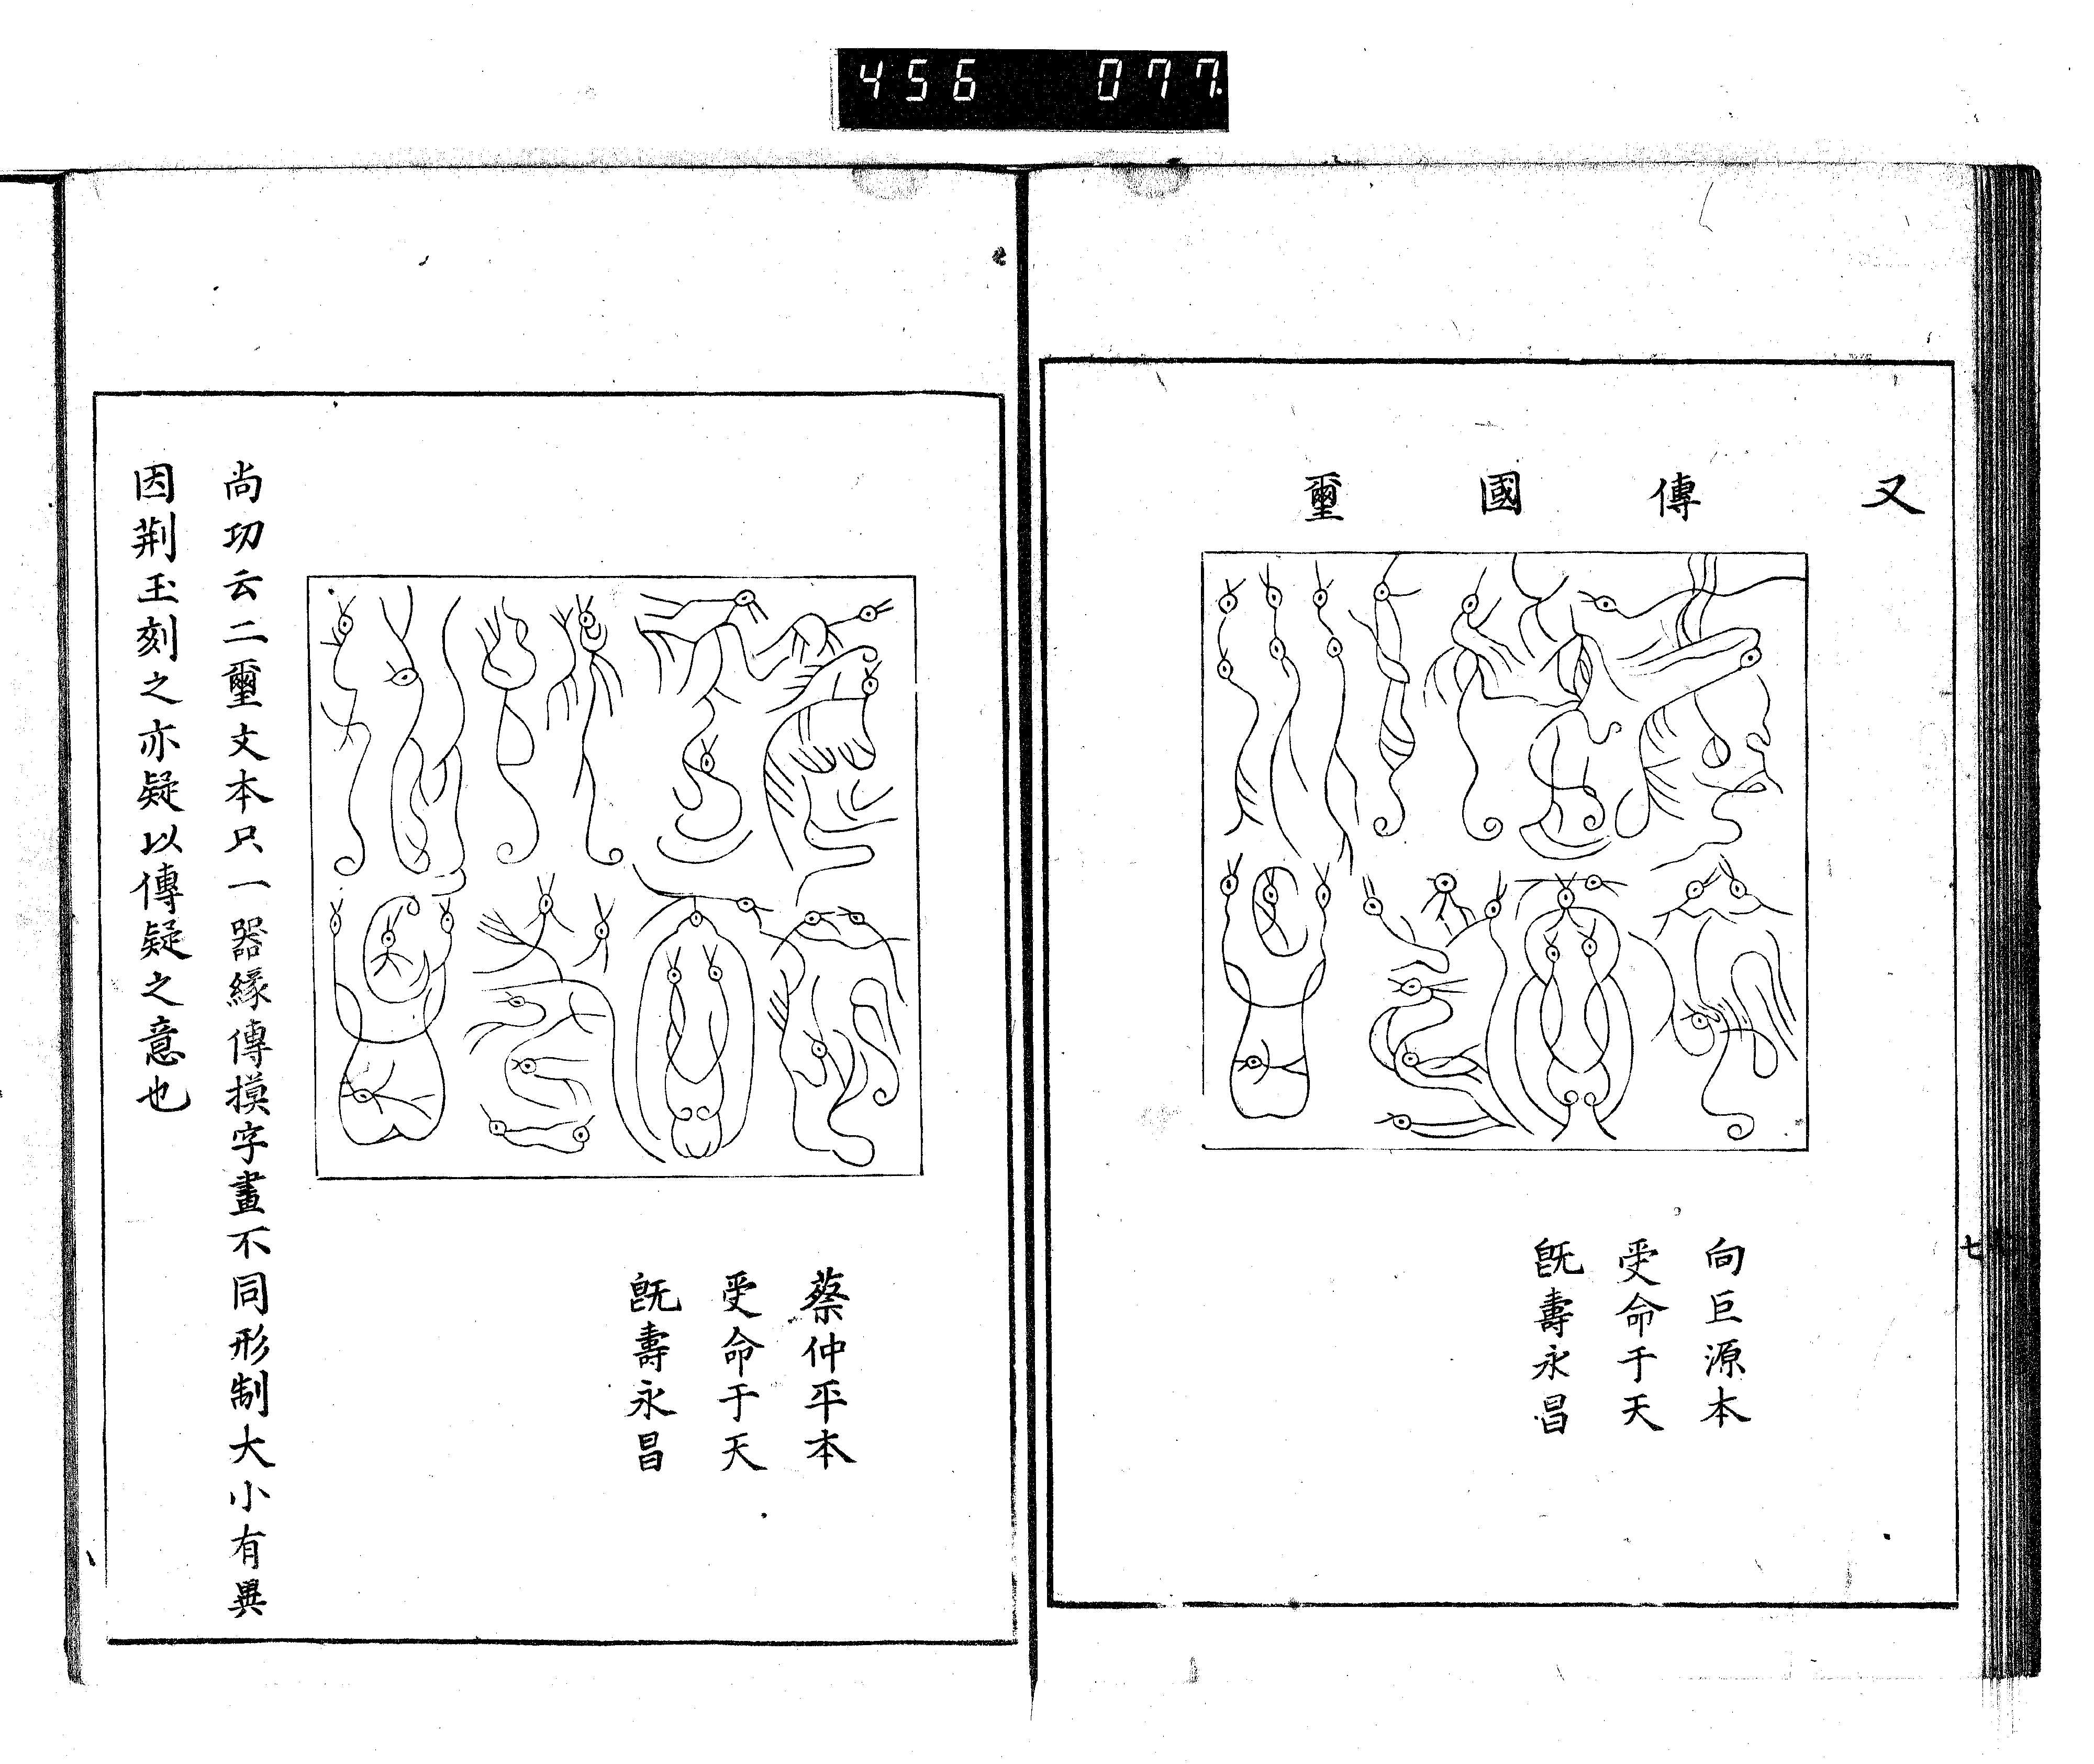 456 077.
又傳國璽
向巨源本
受命于天
旣壽永昌
七
蔡仲平本
受命于天
旣壽永昌
尚功云二璽文本只一器緣傳摸字畫不同形制大小有異
因荆玉刻之亦疑以傳疑之意也